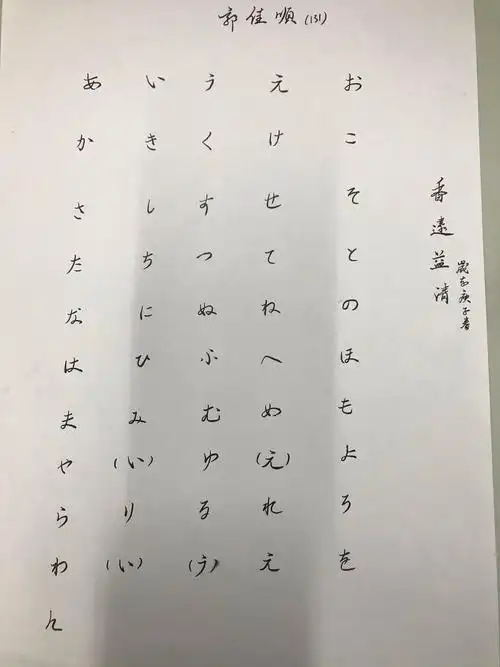 郭佳順 (131)
あ い う え お
か き く け こ
さ し す せ そ
た ち つ て と
な に ぬ ね の
は ひ ふ へ ほ
ま み む め も
や (い) ゆ (え) よ
ら り る れ ろ
わ (い) (う) え を
ん
香遠益清
歲在庚子春